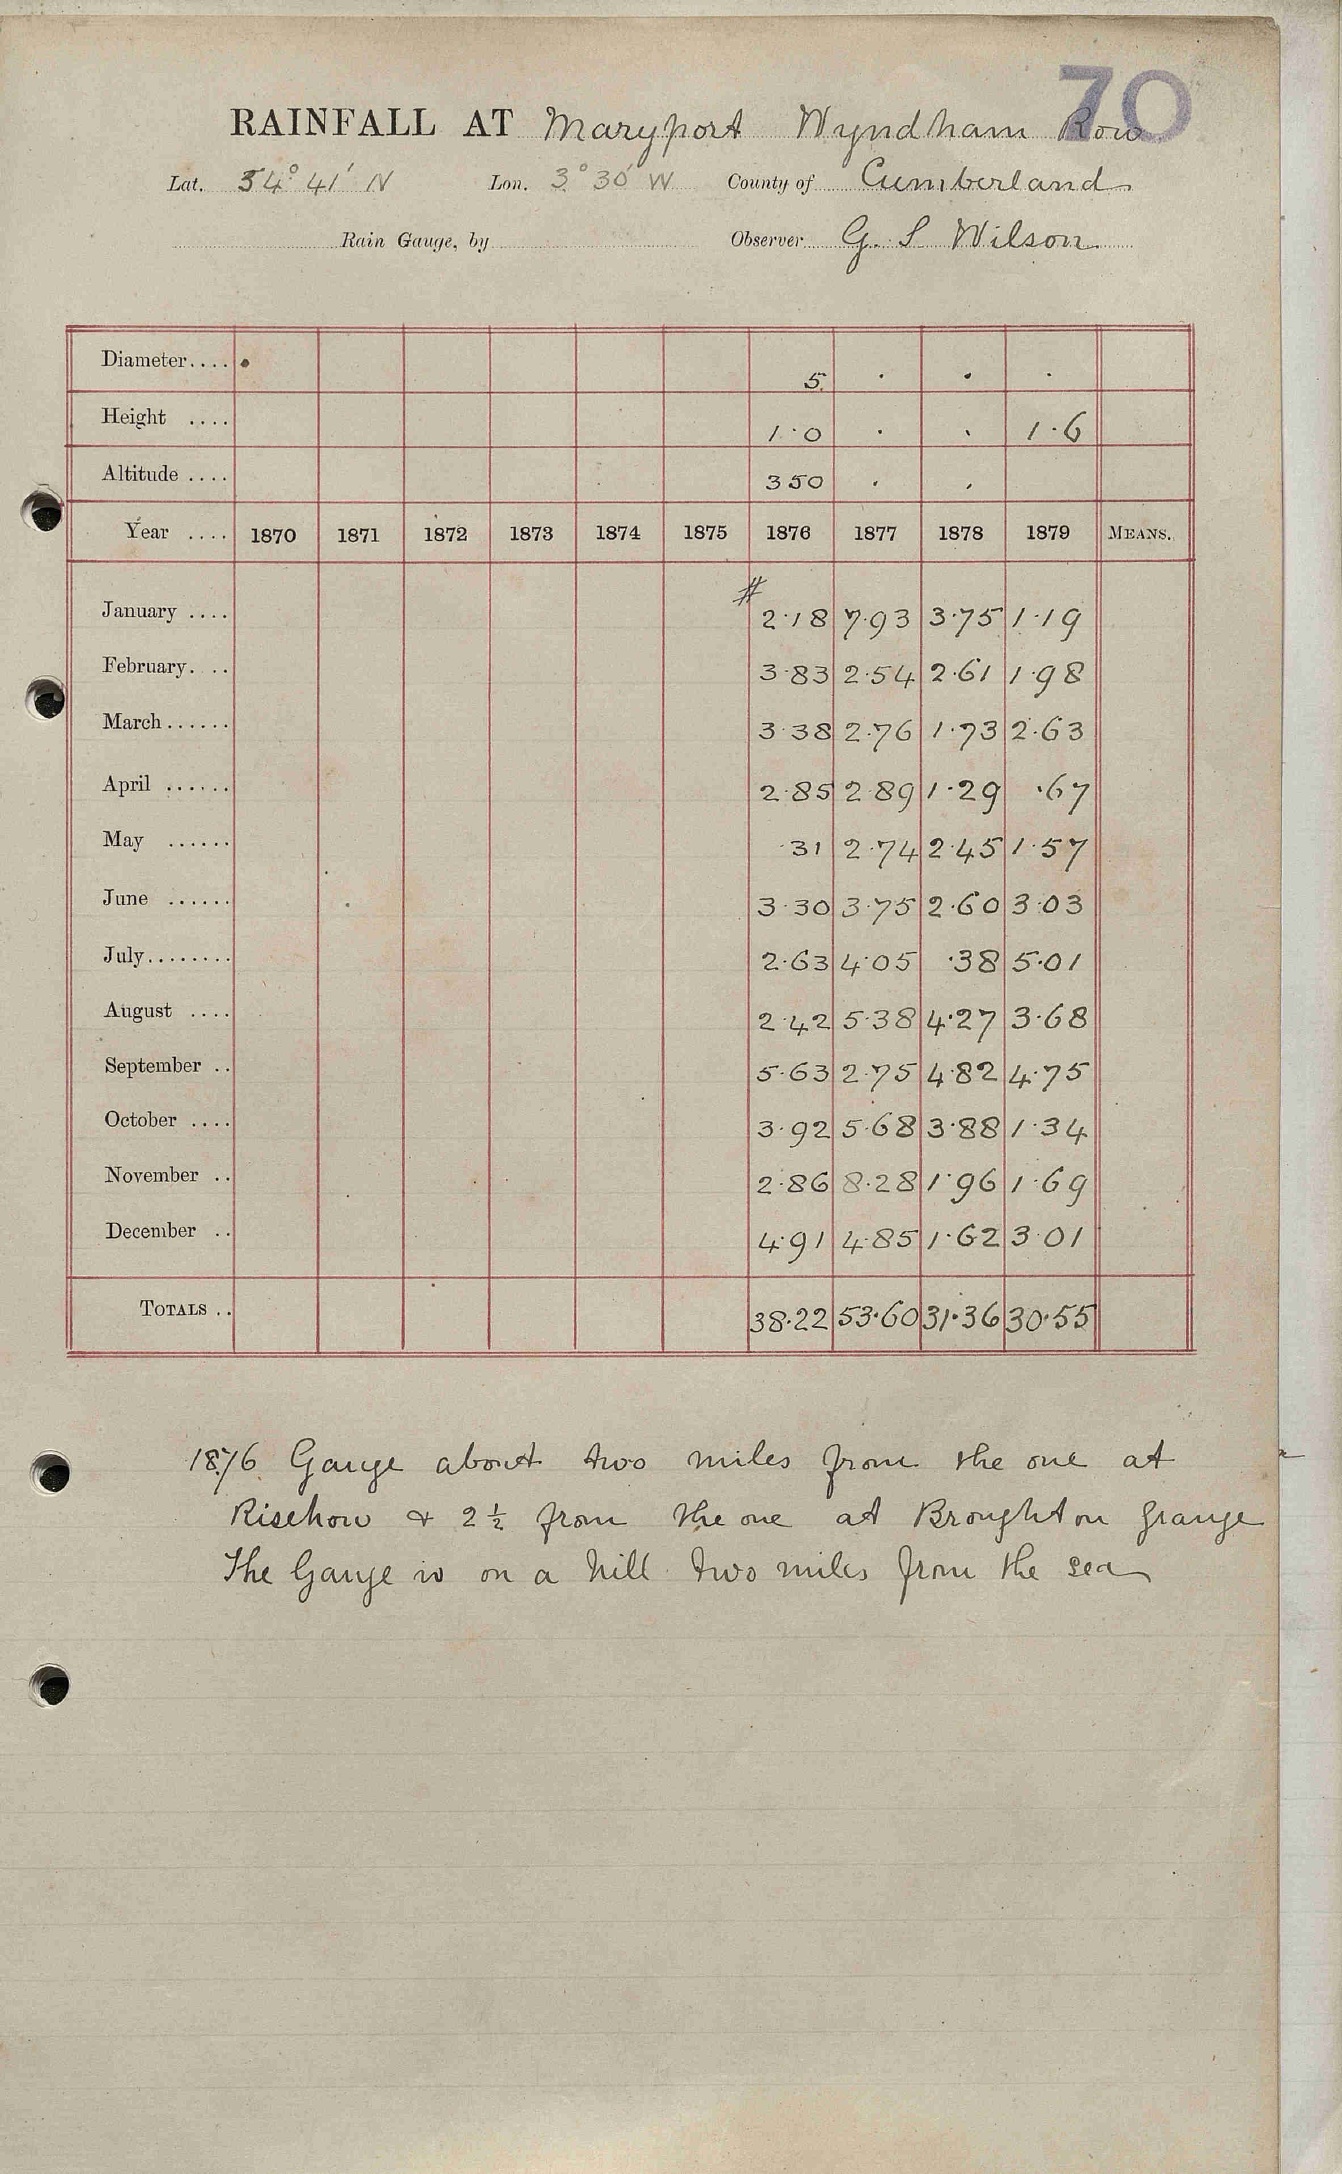 70
RAINFALL AT Maryport Wyndham Row
Lat. 54° 41' N Lon. 3° 30' W County of Cumberland
Rain Gauge, by Observer G. S Wilson
Diameter.... 5. . . .
Height .... 1.0 . . 1.6
Altitude .... 350 . .
Year .... 1870 1871 1872 1873 1874 1875 1876 1877 1878 1879 MEANS.
#
January .... 2.18 7.93 3.75 1.19
February. .. 3.83 2.54 2.61 1.98
March...... 3.38 2.76 1.73 2.63
April ...... 2.85 2.89 1.29 .67
May ...... .31 2.74 2.45 1.57
June ...... 3.30 3.75 2.60 3.03
July........ 2.63 4.05 .38 5.01
August .... 2.42 5.38 4.27 3.68
September .. 5.63 2.75 4.82 4.75
October .... 3.92 5.68 3.88 1.34
November .. 2.86 8.28 1.96 1.69
December .. 4.91 4.85 1.62 3.01
TOTALS .. 38.22 53.60 31.36 30.55
1876 Gauge about two miles from the one at
Risehow & 2½ from the one at Broughton Grange
The Gauge is on a hill two miles from the sea